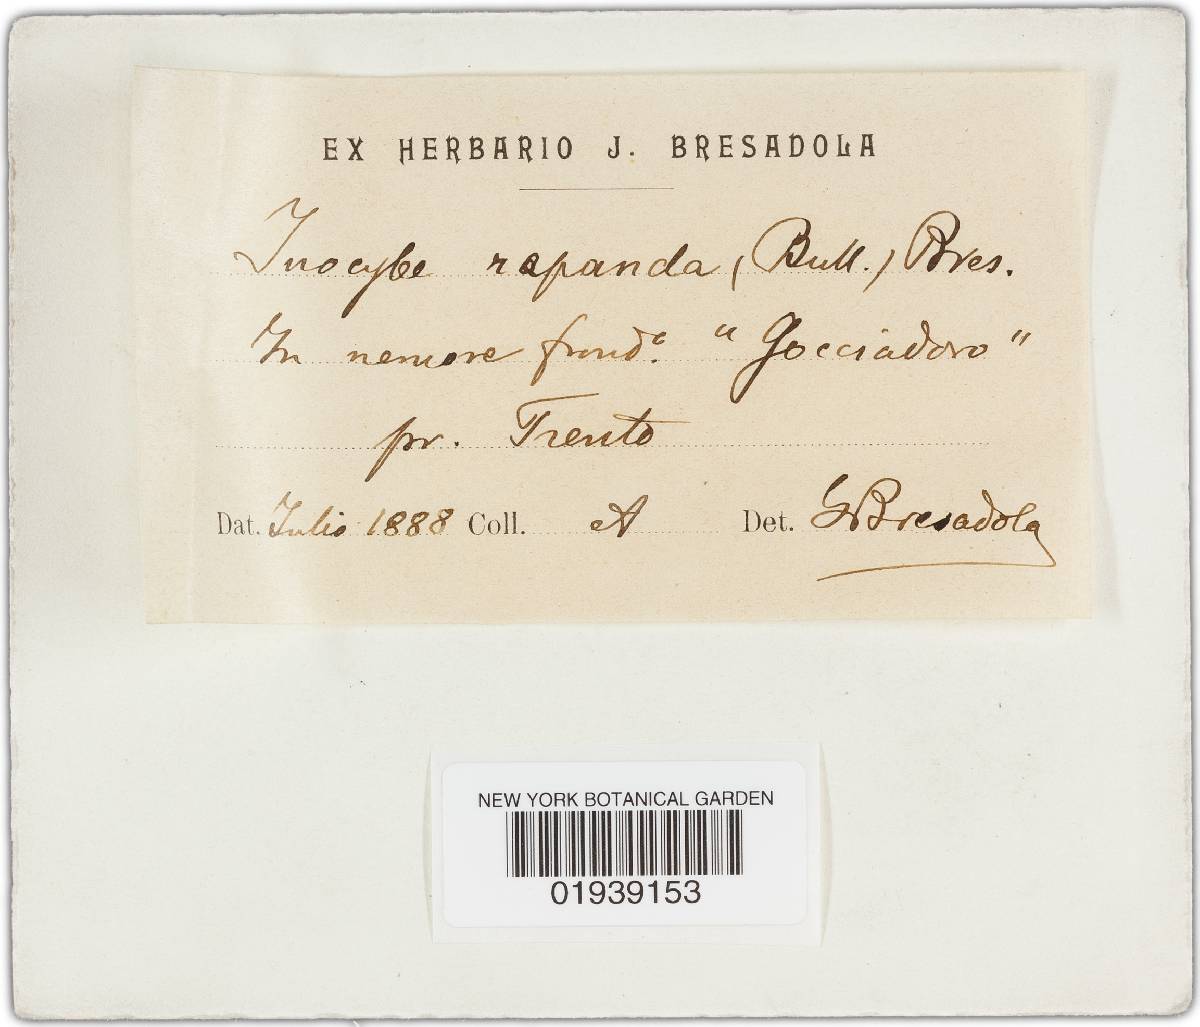 EX HERBARIO J. BRESADOLA
Inocybe repanda (Bull.) Bres.
In nemore frond.ᵉ "Gocciadoro"
pr. Trento
Dat. Julio 1888 Coll. A Det. G Bresadola
NEW YORK BOTANICAL GARDEN
01939153